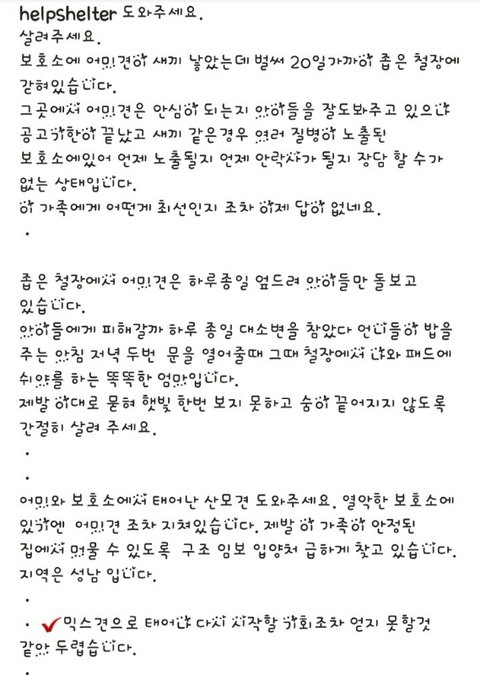 helpshelter 도와주세요.
살려주세요.
보호소에 어미견이 새끼 낳았는데 벌써 20일가까이 좁은 철장에
갇혀있습니다.
그곳에서 어미견은 안심이 되는지 아이들을 잘도봐주고 있으나
공고기한이 끝났고 새끼 같은경우 여러 질병이 노출된
보호소에있어 언제 노출될지 언제 안락사가 될지 장담 할 수가
없는 상태입니다.
이 가족에게 어떤게 최선인지 조차 이제 답이 없네요.
.
좁은 철장에서 어미견은 하루종일 엎드려 아이들만 돌보고
있습니다.
아이들에게 피해갈까 하루 종일 대소변을 참았다 언니들이 밥을
주는 아침 저녁 두번 문을 열어줄때 그때 철장에서 나와 패드에
쉬야를 하는 똑똑한 엄마입니다.
제발 이대로 묻혀 햇빛 한번 보지 못하고 숨이 끝어지지 않도록
간절히 살려 주세요.
.
.
어미와 보호소에서 태어난 산모견 도와주세요. 열악한 보호소에
있기엔 어미견 조차 지쳐있습니다. 제발 이 가족이 안정된
집에서 머물 수 있도록 구조 임보 입양처 급하게 찾고 있습니다.
지역은 성남 입니다.
.
. ✔믹스견으로 태어나 다시 시작할 기회조차 얻지 못할것
같아 두렵습니다.
.